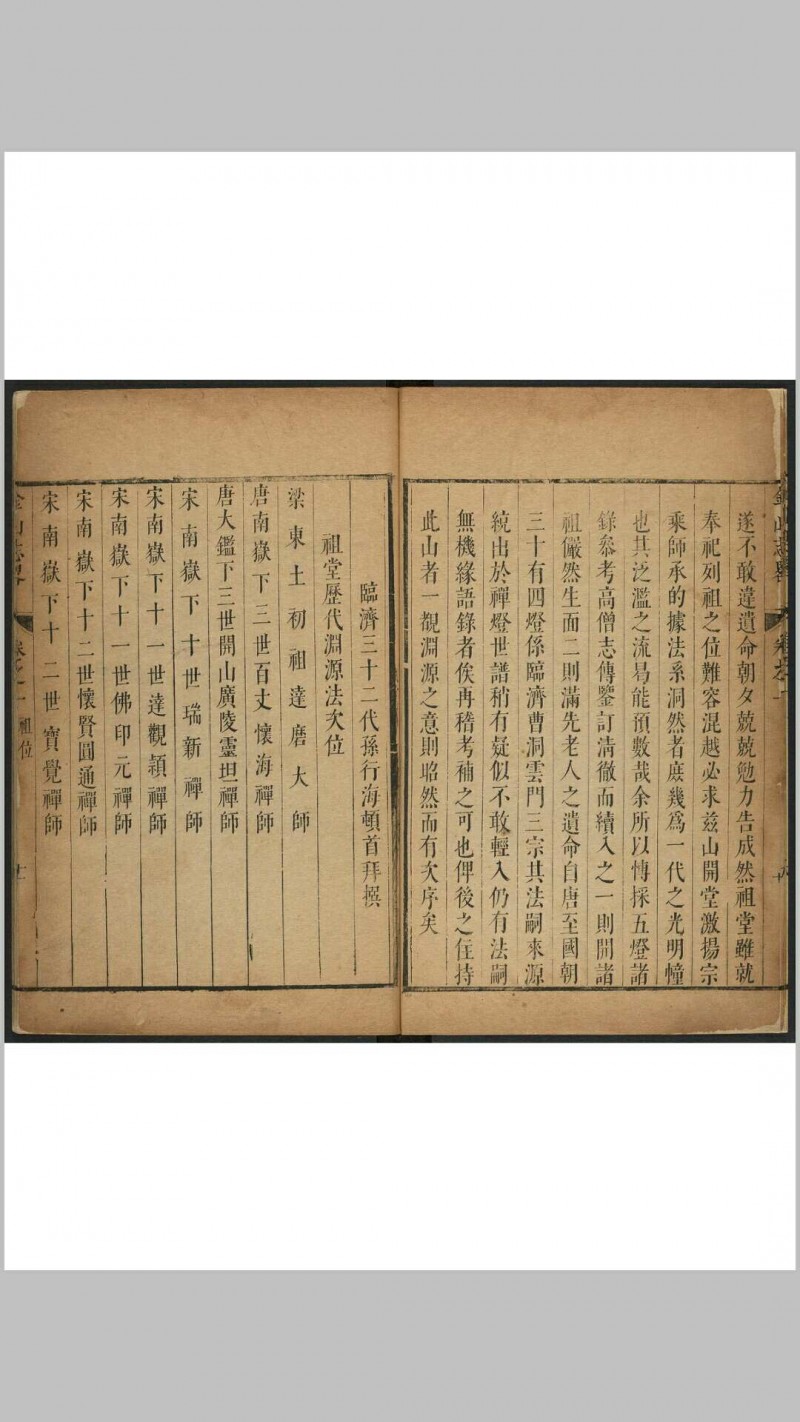 遂不敢違遺命朝夕兢兢勉力告成然祖堂雖就
奉祀列祖之位難容混越必求兹山開堂激揚宗
乘師承的據法系洞然者庶幾爲一代之光明幢
也其泛濫之流曷能預數哉余所以慱採五燈諸
錄叅考高僧志傳鑒訂清徹而續入之一則開諸
祖儼然生面二則滿先老人之遺命自唐至國朝
三十有四燈係臨濟曹洞雲門三宗其法嗣來源
統出於禪燈世譜稍有疑似不敢輕入仍有法嗣
無機緣語錄者俟再稽考補之可也俾後之住持
此山者一覩淵源之意則昭然而有次序矣
臨濟三十二代孫行海頓首拜撰
祖堂歷代淵源法次位
梁東土初祖達磨大師
唐南嶽下三世百丈懷海禪師
唐大鑑下三世開山廣陵靈坦禪師
宋南嶽下十世瑞新禪師
宋南嶽下十一世達觀頴禪師
宋南嶽下十一世佛印元禪師
宋南嶽下十二世懷賢圓通禪師
宋南嶽下十二世寶覺禪師
金山志畧
卷之一
祖位
十一